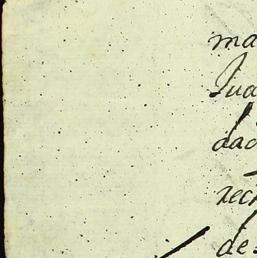 ma
Jua
dad
rec
de